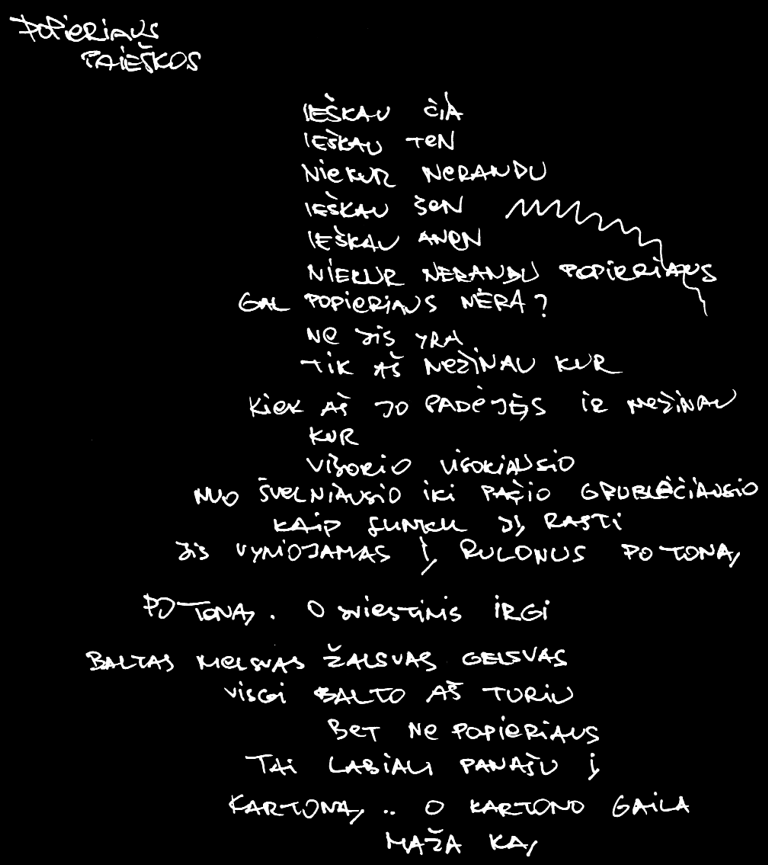 POPIERIAUS
PAIEŠKOS
IEŠKAU ČIA
IEŠKAU TEN
NIEKUR NERANDU
IEŠKAU ŠEN
IEŠKAU ANEN
NIEKUR NERANDU POPIERIAUS
GAL POPIERIAUS NĖRA?
NE JIS YRA
TIK AŠ NEŽINAU KUR
KIEK AŠ JO PADĖJĘS IR NEŽINAU
KUR
VISOKIO VISOKIAUSIO
NUO ŠVELNIAUSIO IKI PAČIO GRUBLĖČIAUSIO
KAIP SUNKU JĮ RASTI
JIS VYNIOJAMAS Į RULONUS PO TONĄ
PO TONĄ. O SVIESTINIS IRGI
BALTAS MELSVAS ŽALSVAS GELSVAS
VISGI BALTO AŠ TURIU
BET NE POPIERIAUS
TAI LABIAU PANAŠU Į
KARTONĄ.. O KARTONO GAILA
MAŽA KĄ